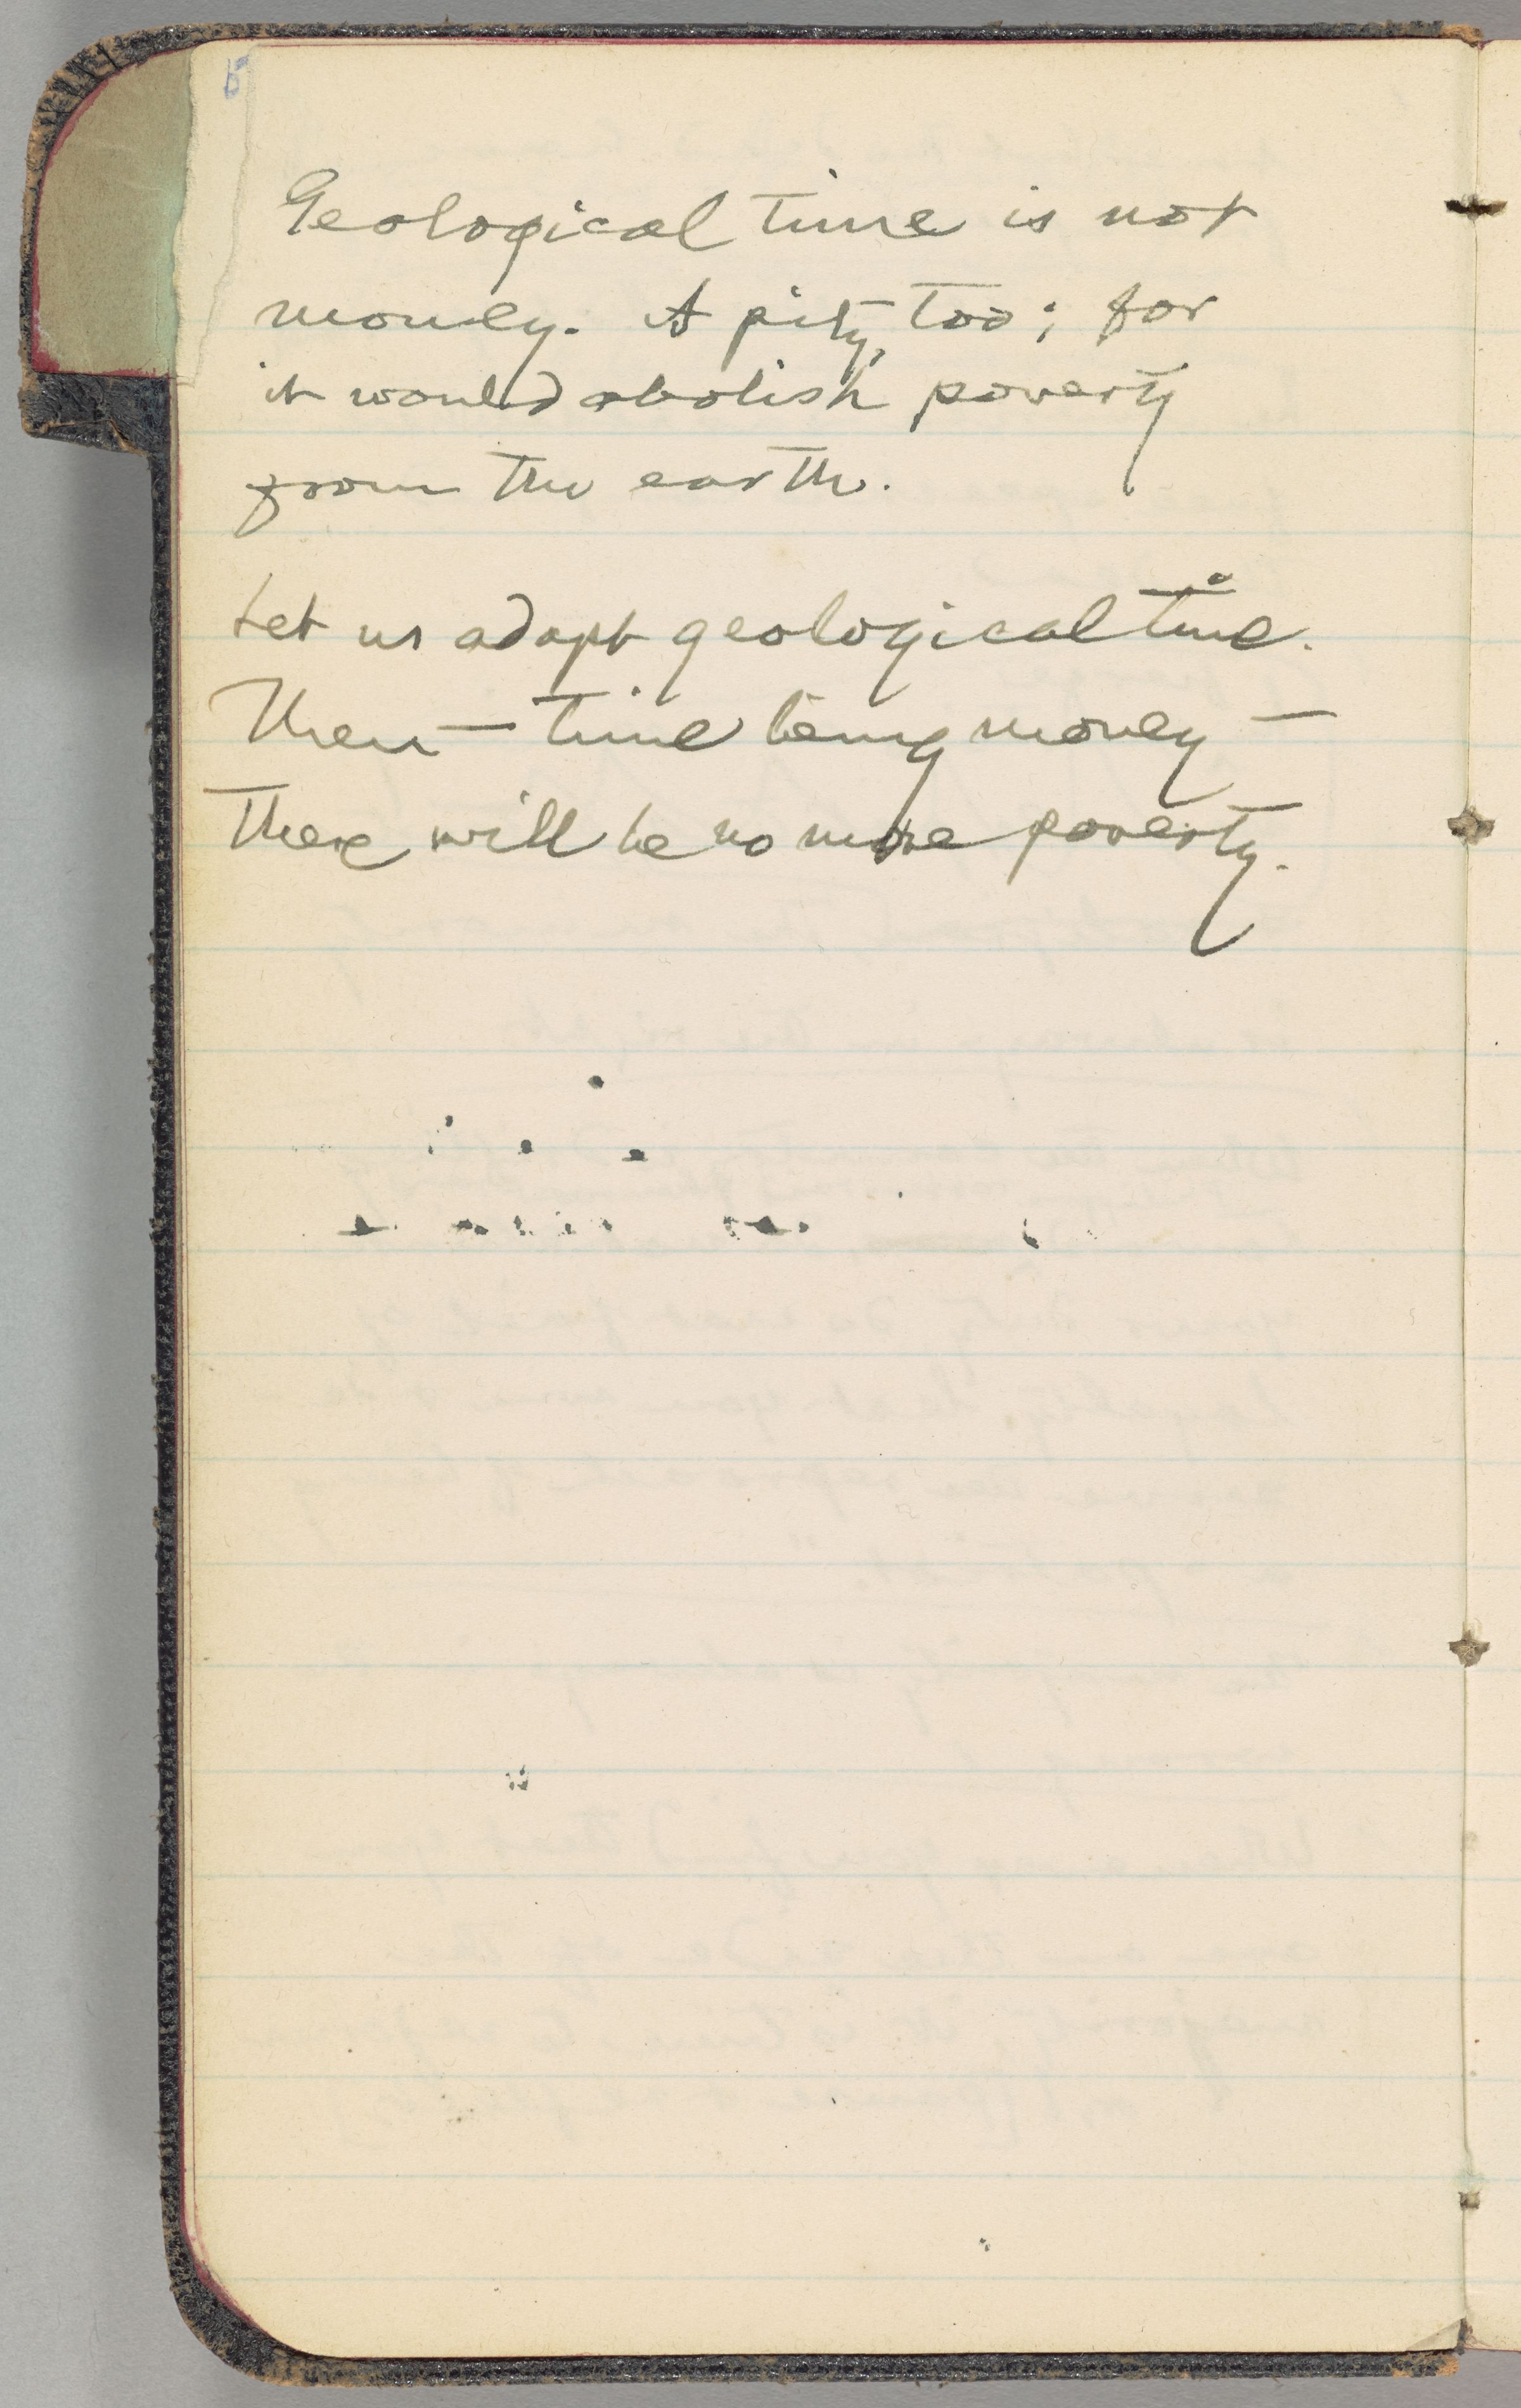 5
Geological time is not
money. A pity, too; for
it would abolish poverty
from the earth.
Let us adopt geological time.
Then — time being money —
there will be no more poverty.